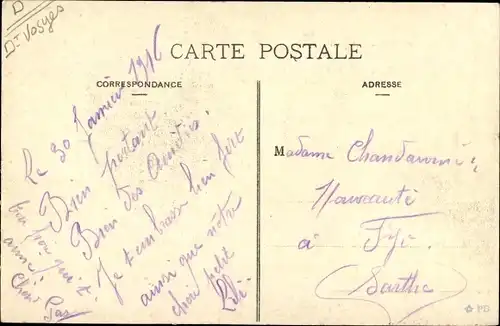 D
Dt Vosges
CARTE POSTALE
CORRESPONDANCE
ADRESSE
Le 30 Janvier 1916
Bien portant
Bien des Amitiés
Je t'embrasse bien fort
ainsi que notre
chère petite
bon
aimé
Madame
Nouveauté
à Fyé
(Sarthe)
PD